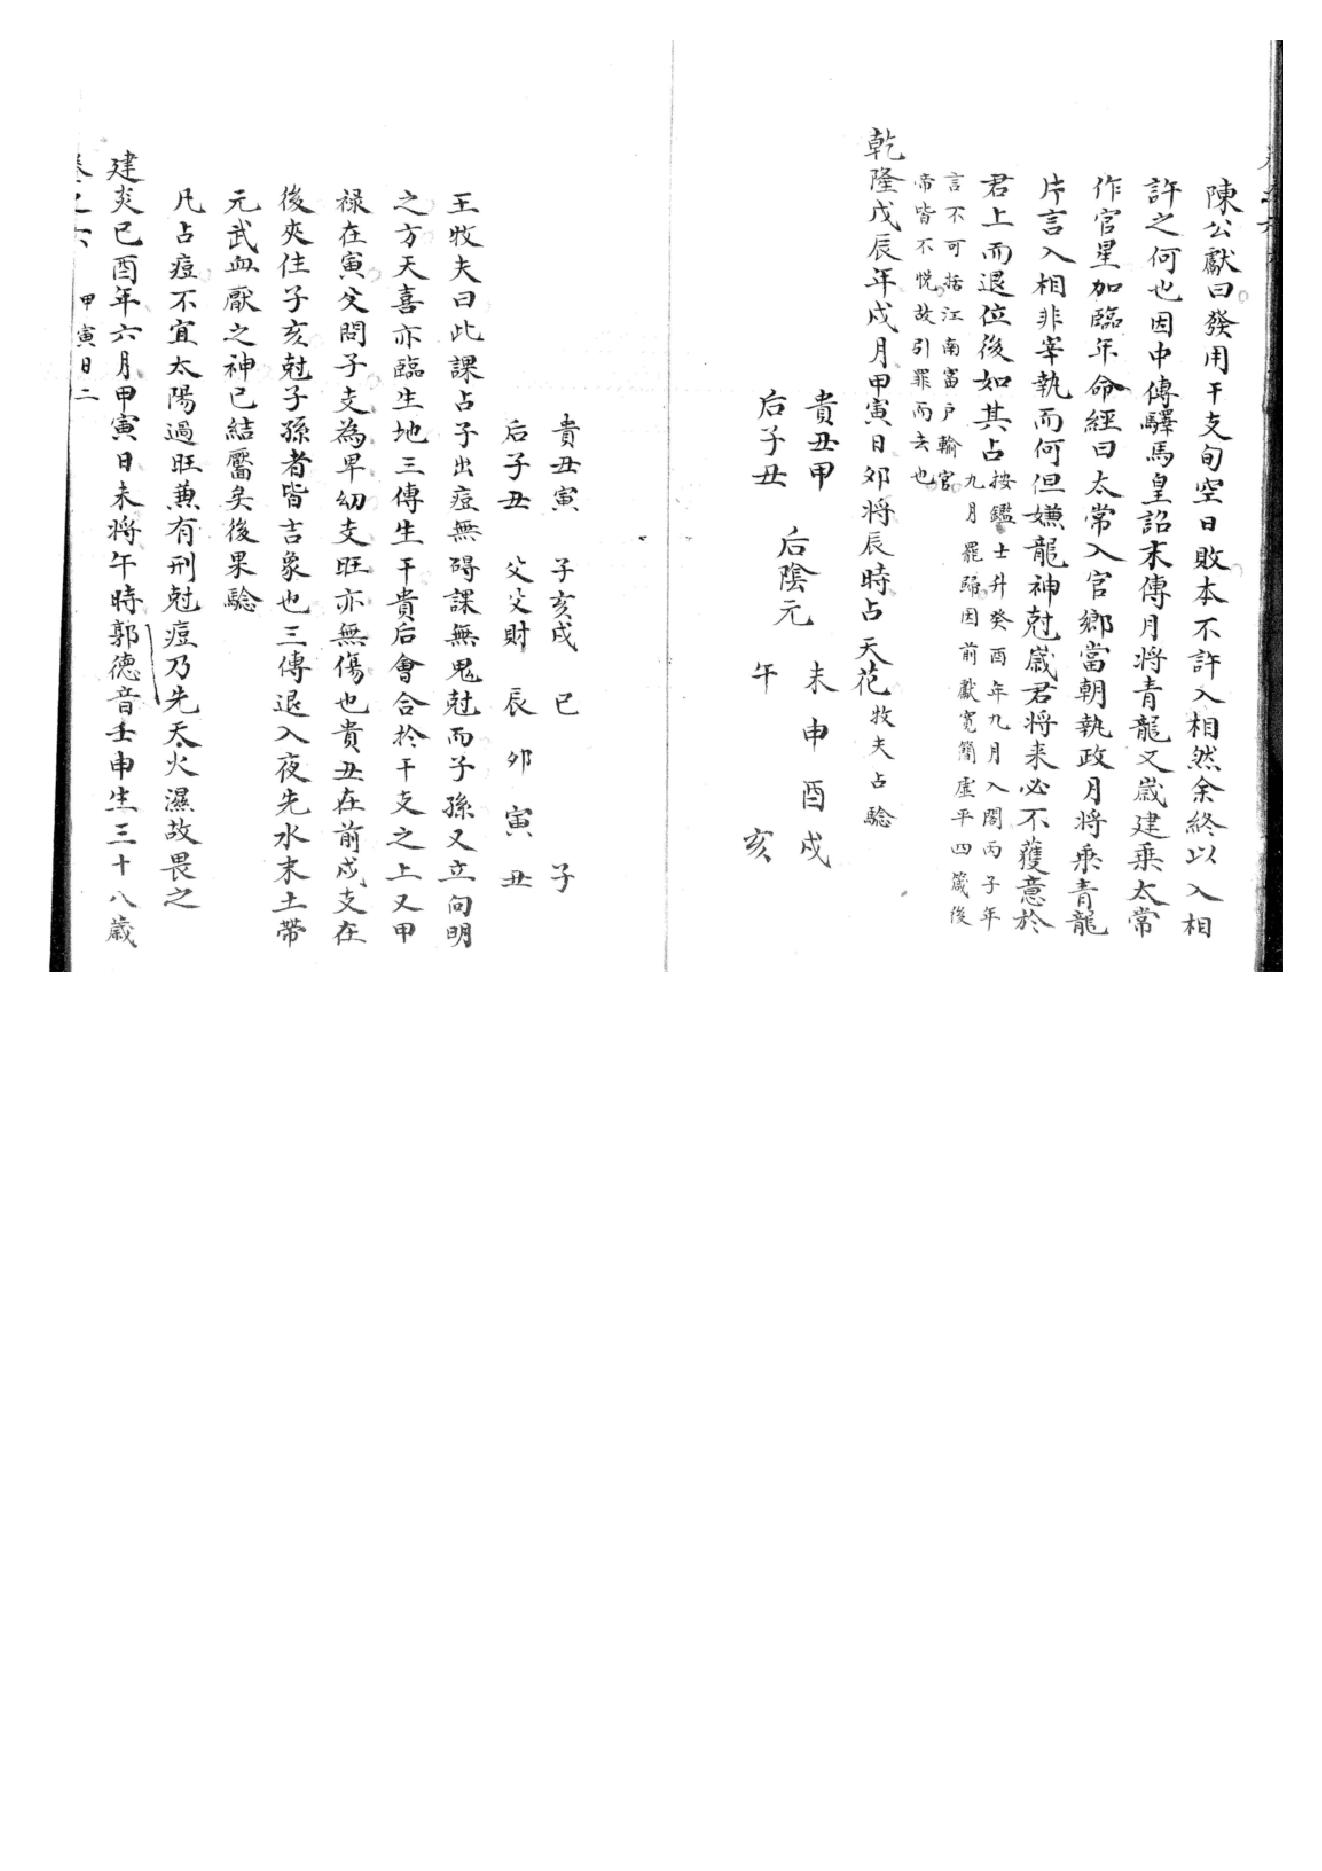 陳公獻曰發用干支旬空日敗本不許入相然余終以入相
許之何也因中傳驛馬皇詔末傳月將青龍又歲建乘太常
作官星加臨年命經曰太常入官鄉當朝執政月將乘青龍
片言入相非宰執而何但嫌龍神尅歲君將来必不獲意於
君上而退位後如其占
按鑑士升癸酉年九月入閣丙子年
九月罷歸因前獻寬簡虛平四箴後
言不可括江南富戶輸官
帝皆不悅故引罪而去也
乾隆戊辰年戌月甲寅日卯將辰時占天花牧夫占驗
貴丑甲
后子丑
后陰元
未申酉戌
午
亥
貴丑寅 子亥戌 巳 子
后子丑 父父財 辰卯寅丑
王牧夫曰此課占子出痘無碍課無鬼尅而子孫又立向明
之方天喜亦臨生地三傳生干貴后會合於干支之上又甲
祿在寅父問子支為卑幼支旺亦無傷也貴丑在前戌支在
後夾住子亥尅子孫者皆吉象也三傳退入夜先水末土帶
元武血厭之神已結靨矣後果驗
凡占痘不宜太陽過旺兼有刑尅痘乃先天火濕故畏之
建炎己酉年六月甲寅日未將午時郭德音壬申生三十八歲
卷之六 甲寅日二